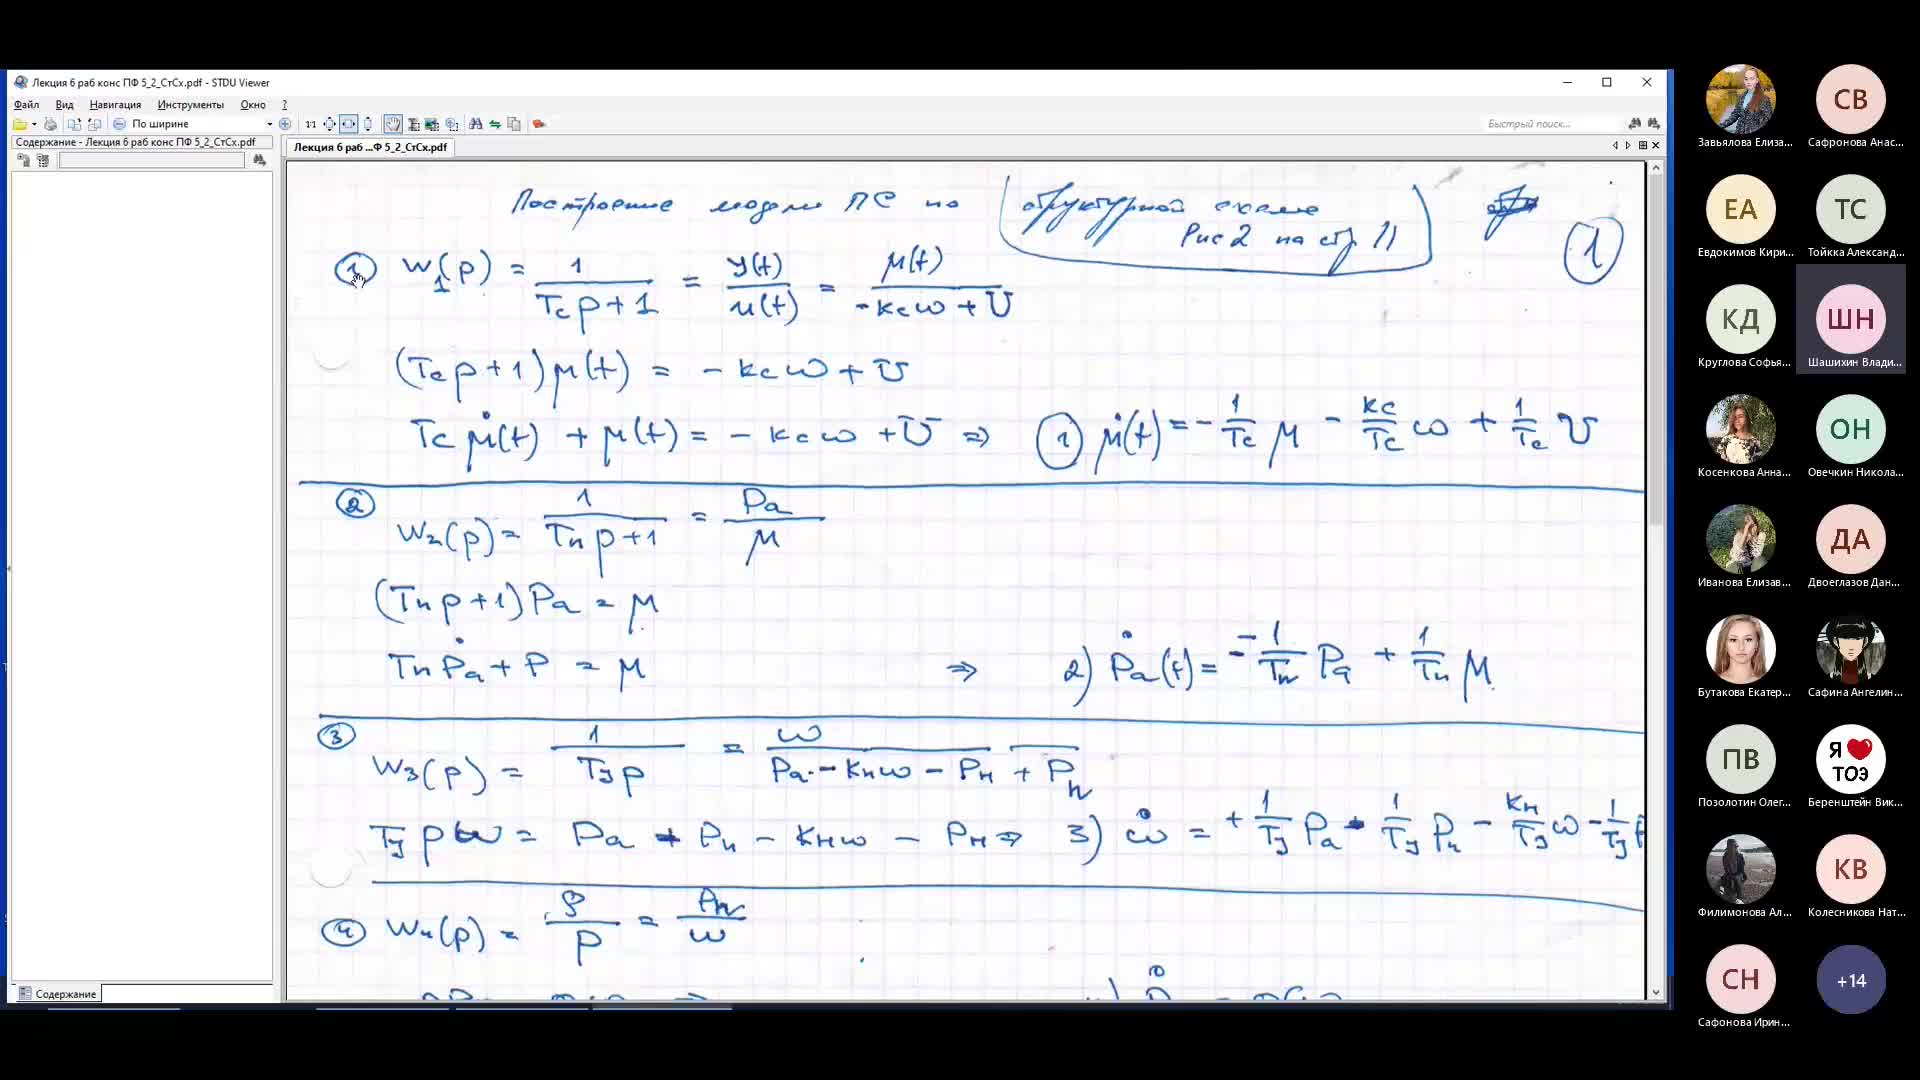 Лекция 6 раб конс ПФ 5_2_СтСх.pdf - STDU Viewer
Файл Вид Навигация Инструменты Окно ?
По ширине
1:1
Быстрый поиск...
Содержание - Лекция 6 раб конс ПФ 5_2_СтСх.pdf
Лекция 6 раб ...Ф 5_2_СтСх.pdf
Построение модели ПС по структурной схеме
Рис 2 на стр. 11
1
① W₁(p) = 1/(Tc p + 1) = y(t)/u(t) = μ(t)/(-kcω + U)
(Tc p + 1) μ(t) = - kc ω + U
Tc μ̇(t) + μ(t) = - kc ω + U ⇒ ① μ̇(t) = - 1/Tc μ - kc/Tc ω + 1/Tc U
② W₂(p) = 1/(Tп p + 1) = Pa/μ
(Tп p + 1) Pa = μ
Tп Ṗa + P = μ ⇒ 2) Ṗa(t) = - 1/Tп Pa + 1/Tп μ
③ W₃(p) = 1/(Tу p) = ω/(Pa - Kнω - Pн + Pп)
3) ω̇ =
④ W₄(p) = ρ/p = Pп/ω
Содержание
Завьялова Елиза...
СВ
Сафронова Анас...
ЕА
Евдокимов Кири...
ТС
Тойкка Александ...
КД
Круглова Софья...
ШН
Шашихин Влади...
Косенкова Анна...
ОН
Овечкин Никола...
Иванова Елизав...
ДА
Двоеглазов Дан...
Бутакова Екатер...
Сафина Ангелин...
ПВ
Позолотин Олег...
Я ❤ ТОЭ
Беренштейн Вик...
Филимонова Ал...
КВ
Колесникова Нат...
СН
Сафонова Ирин...
+14